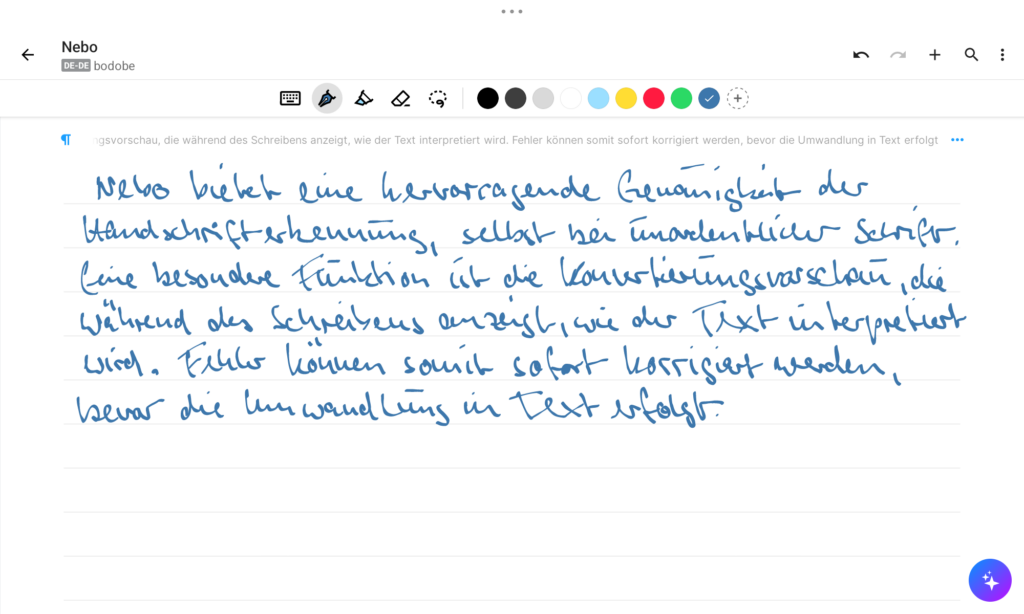 Nebo
DE-DE bodobe
ngsvorschau, die während des Schreibens anzeigt, wie der Text interpretiert wird. Fehler können somit sofort korrigiert werden, bevor die Umwandlung in Text erfolgt
Nebo bietet eine hervorragende Genauigkeit der
Handschrifterkennung, selbst bei unordentlicher Schrift.
Eine besondere Funktion ist die Konvertierungsvorschau, die
während des Schreibens anzeigt, wie der Text interpretiert
wird. Fehler können somit sofort korrigiert werden,
bevor die Umwandlung in Text erfolgt.